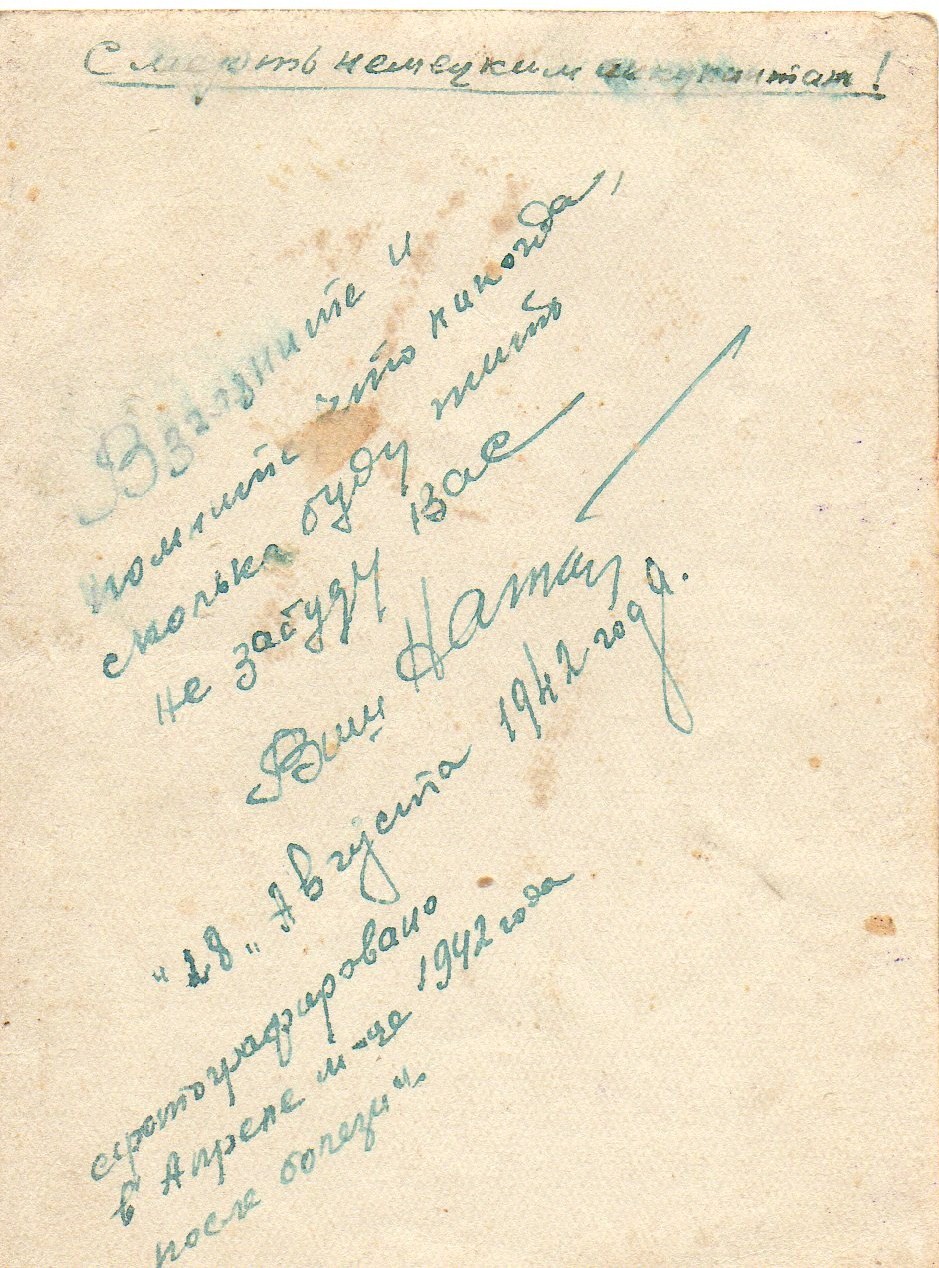 Смерть немецким оккупантам!
Взгляните и
помните что никогда,
сколька буду жить
не забуду Вас
Ваш Натан
"28" Августа 1942 года.
сфотографировано
в Апреле м-це 1942 года
после болезни